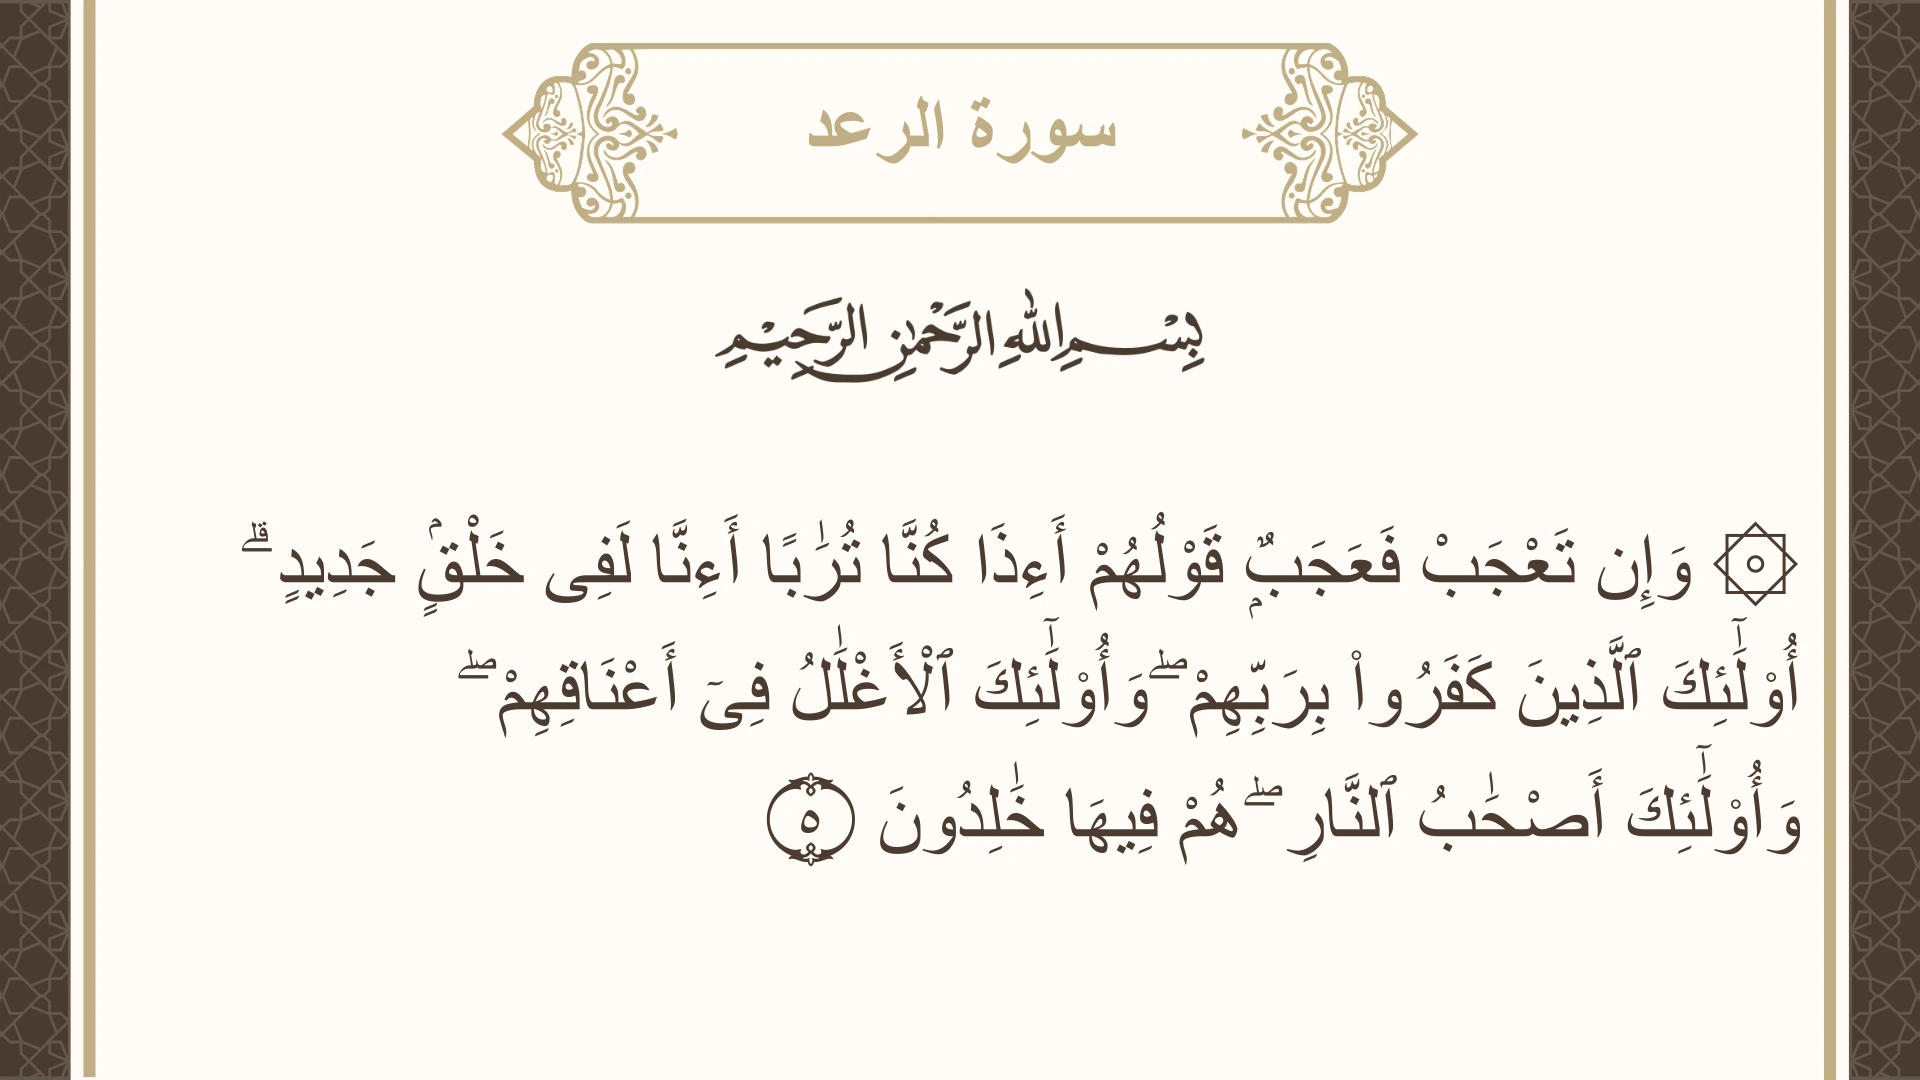 سورة الرعد
بِسْمِ اللهِ الرَّحْمٰنِ الرَّحِيْمِ
۞ وَإِن تَعْجَبْ فَعَجَبٌۭ قَوْلُهُمْ أَءِذَا كُنَّا تُرَٰبًا أَءِنَّا لَفِى خَلْقٍۢ جَدِيدٍ ۗ
أُو۟لَٰٓئِكَ ٱلَّذِينَ كَفَرُوا۟ بِرَبِّهِمْ ۖ وَأُو۟لَٰٓئِكَ ٱلْأَغْلَٰلُ فِىٓ أَعْنَاقِهِمْ ۖ
وَأُو۟لَٰٓئِكَ أَصْحَٰبُ ٱلنَّارِ ۖ هُمْ فِيهَا خَٰلِدُونَ ٥